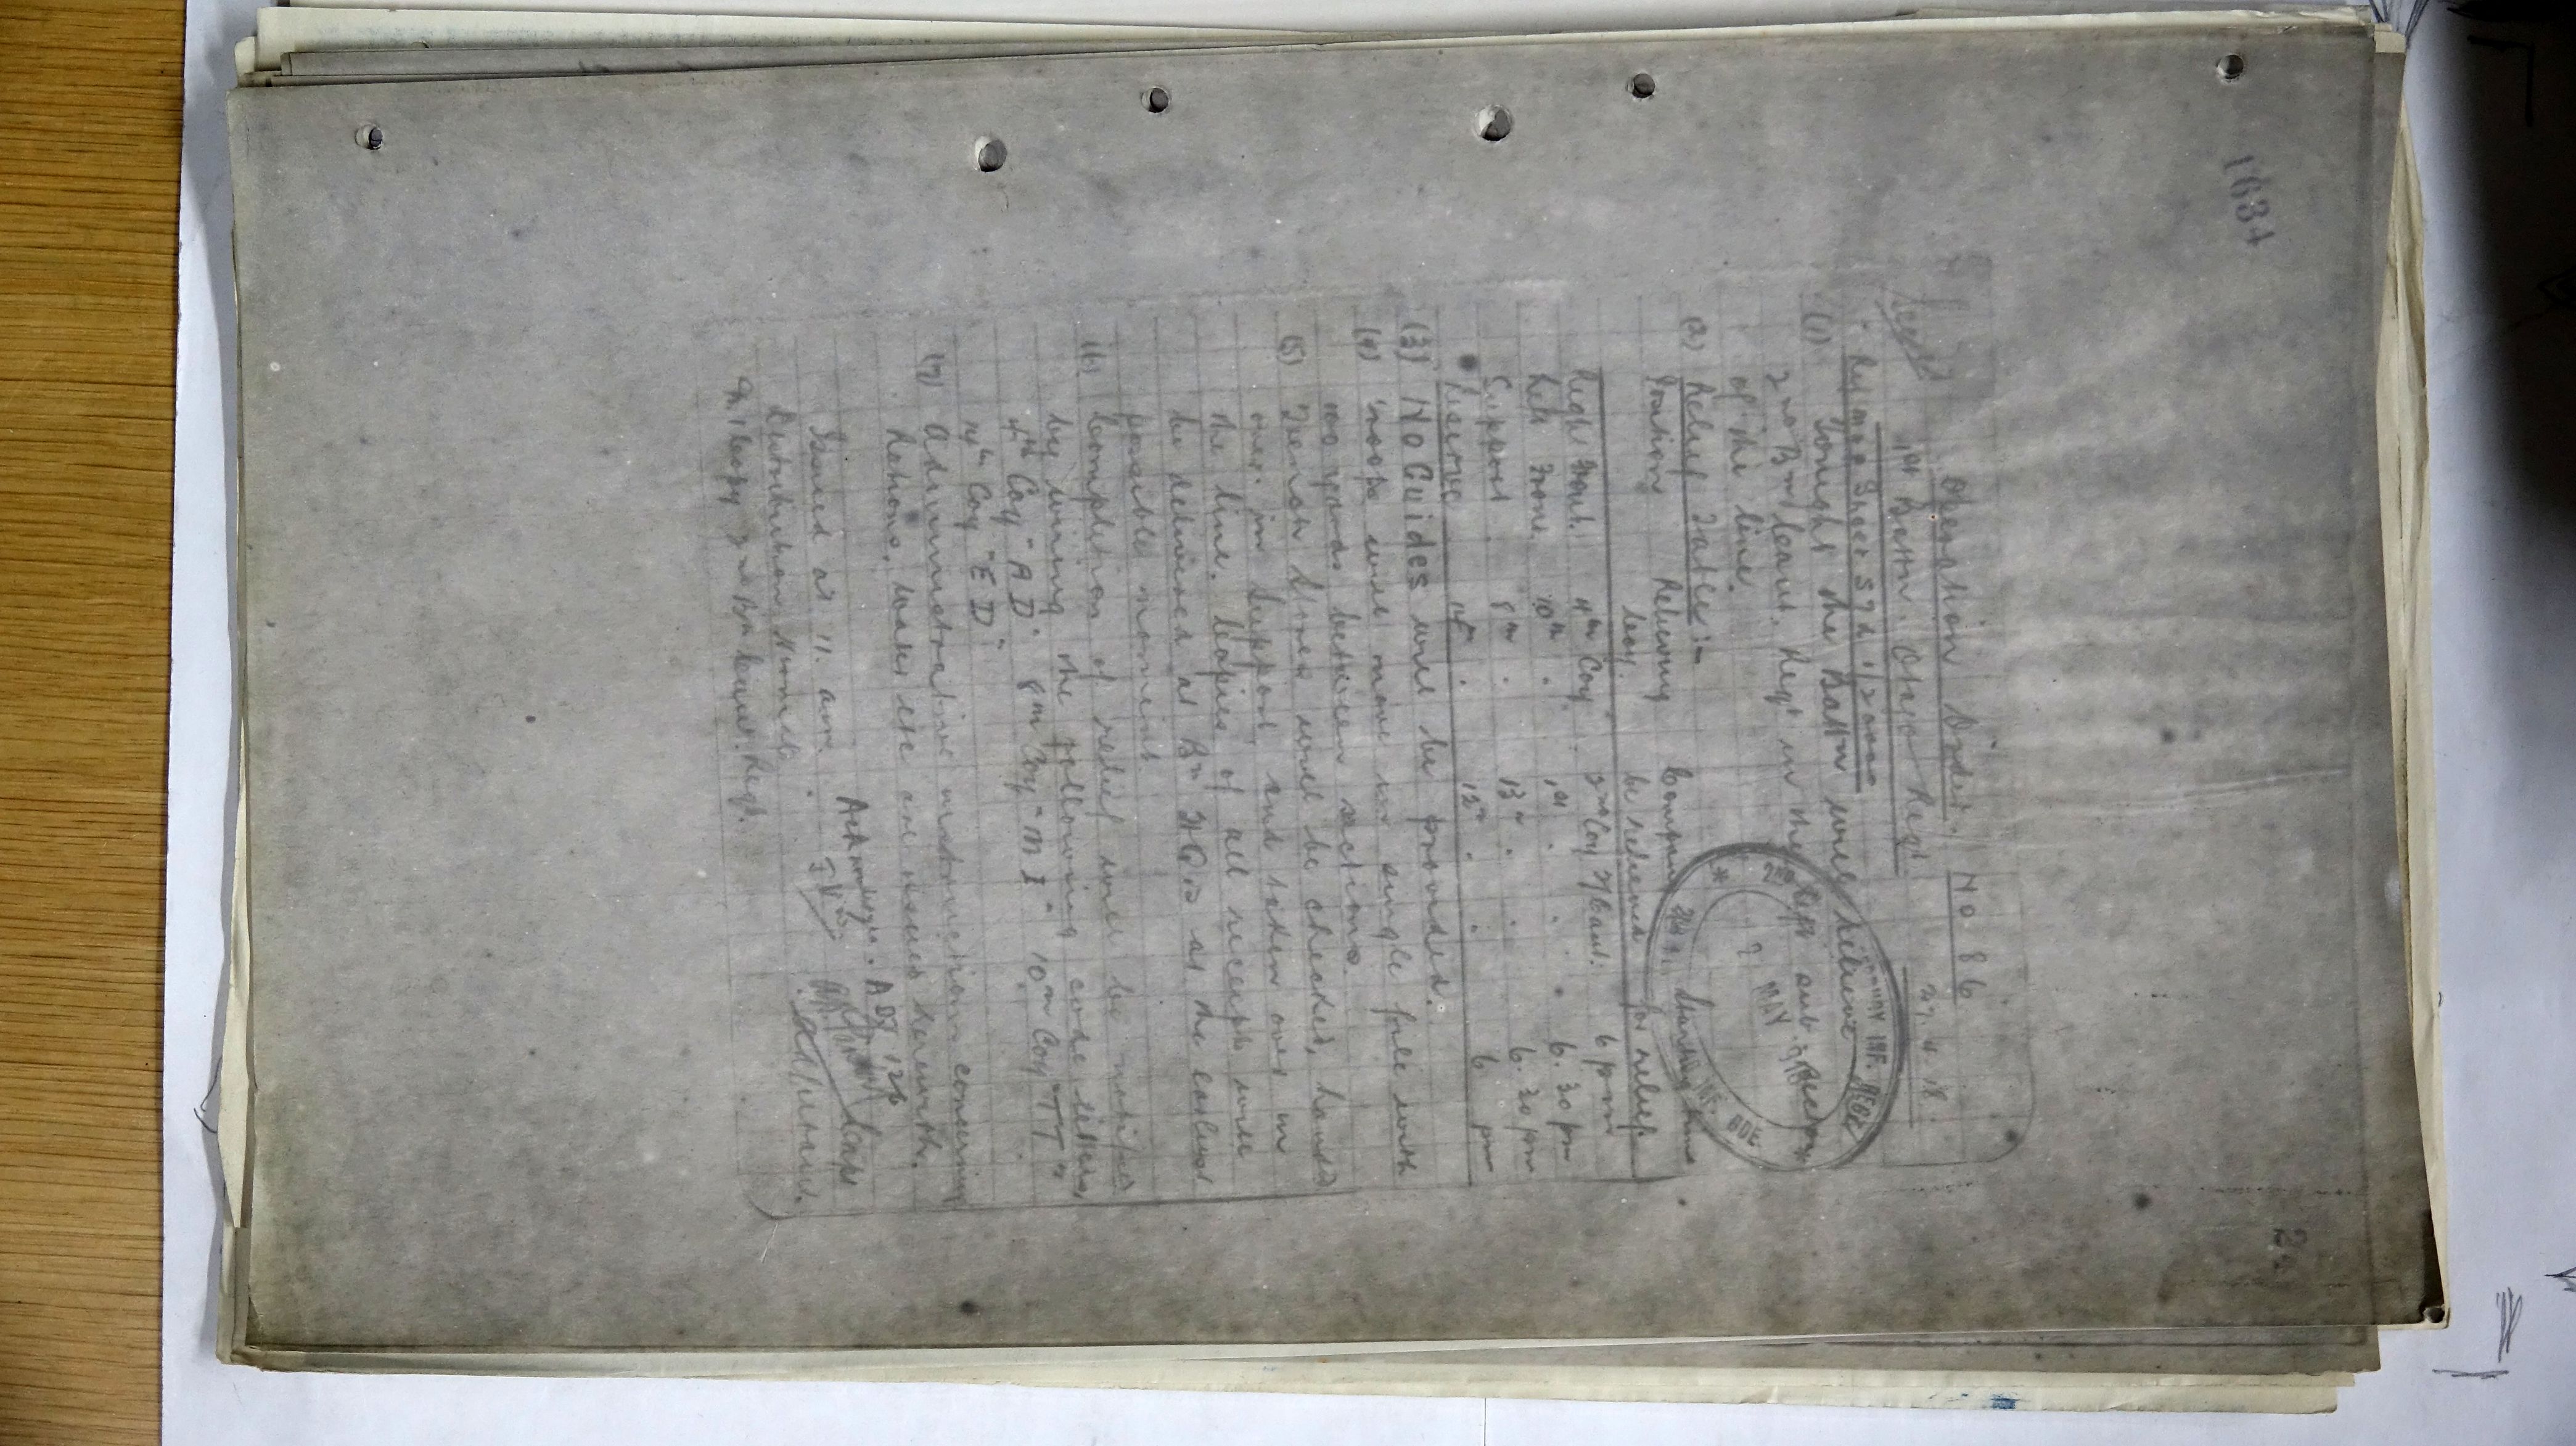 1634
24
Secret
Operation Order No 86
1st Battn. Otago Regt
27.4.18.
Ref map Sheet 57d 1/20000
(1) Tonight the Battn will relieve
2nd Bn Cant. Regt in the left sub sector
of the line.
(2) Relief Table:-
Position Relieving Company Starting time
Coy. to be relieved for relief.
Right Front. 4th Coy. 2nd Coy 2/Cant. 6 pm
Left Front. 10th . 1st . . 6.30 pm
Support 8th . 13th . . 6.30 pm
Reserve 14th . 12th . . 6 pm
(3) No Guides will be provided.
(4) Troops will move in single file with
100 yards between sections.
(5) Trench Stores will be checked, handed
over in Support and taken over in
the line. Copies of all receipts will
be delivered at Bn HQrs at the earliest
possible moment
(6) Completion of relief will be notified
by wiring the following code letters,
4th Coy "A D". 8th Coy "M I" 10th Coy "T T"
14th Coy "E D"
(7) Administrative instructions concerning
Rations, Water etc are issued herewith.
Acknowledge. ADJ 126
Issued at 11. am. Capt
Distribution Normal Adjutant.
2nd Bn Cant. Regt.
MAY
INF. BDE